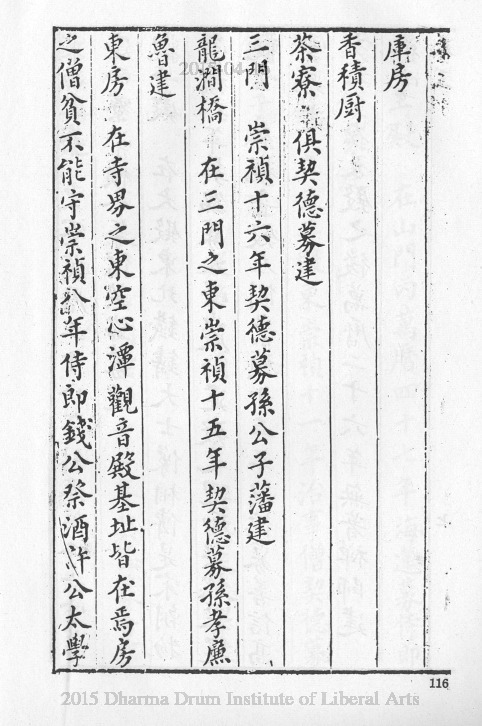 庫房
香積厨
茶寮 俱契德募建
三門 崇禎十六年契德募孫公子藩建
龍澗橋 在三門之東崇禎十五年契德募孫孝廉
魯建
東房 在寺界之東空心潭觀音殿基址皆在焉房
之僧貧不能守崇禎八年侍郎錢公祭酒許公太學
116
2015 Dharma Drum Institute of Liberal Arts